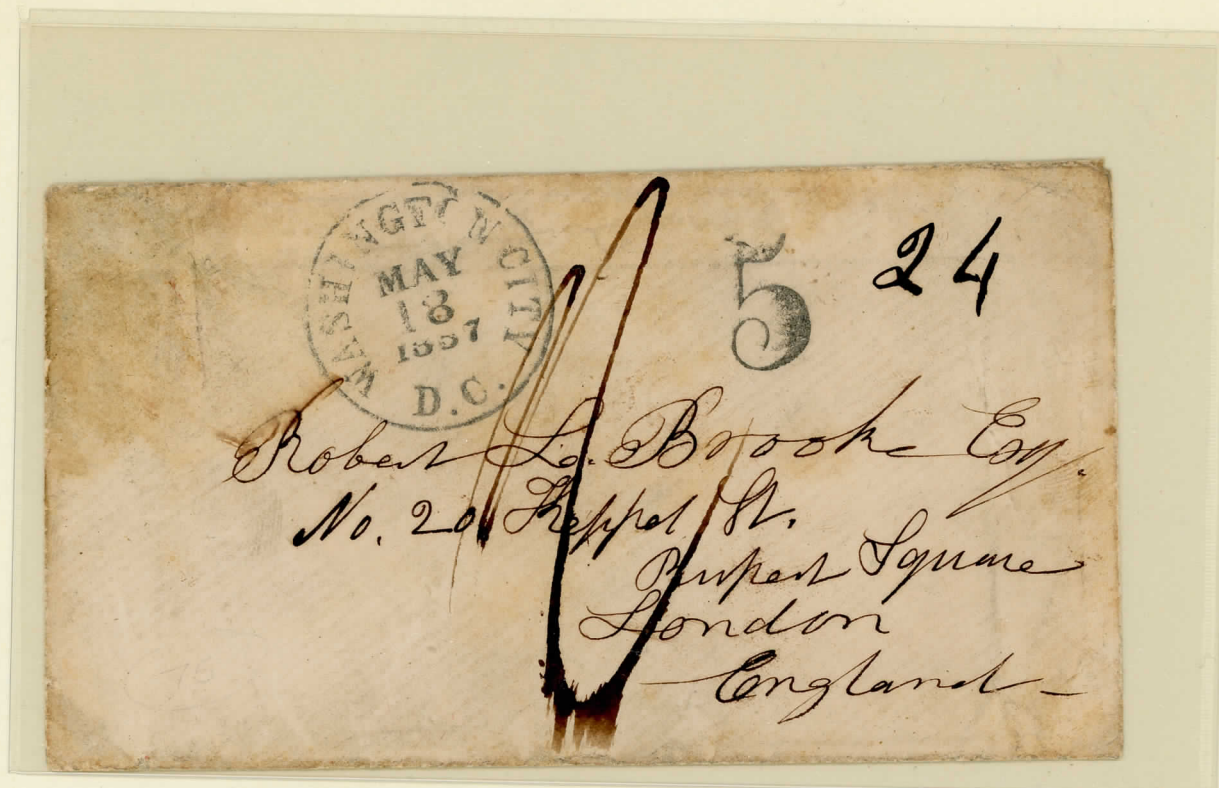 WASHINGTON CITY
MAY
18
1857
D.C.
5
24
Robert L. Brooke Esq.
No. 20 Keppel St.
Rupert Square
London
England